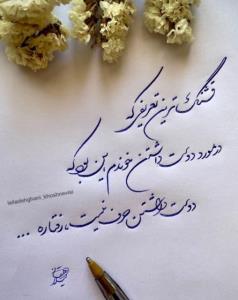 قشنگ ترین تعریفی که
در مورد دوست داشتن خوندم این بود که
دوست داشتن حرف نیست، رفتاره ...